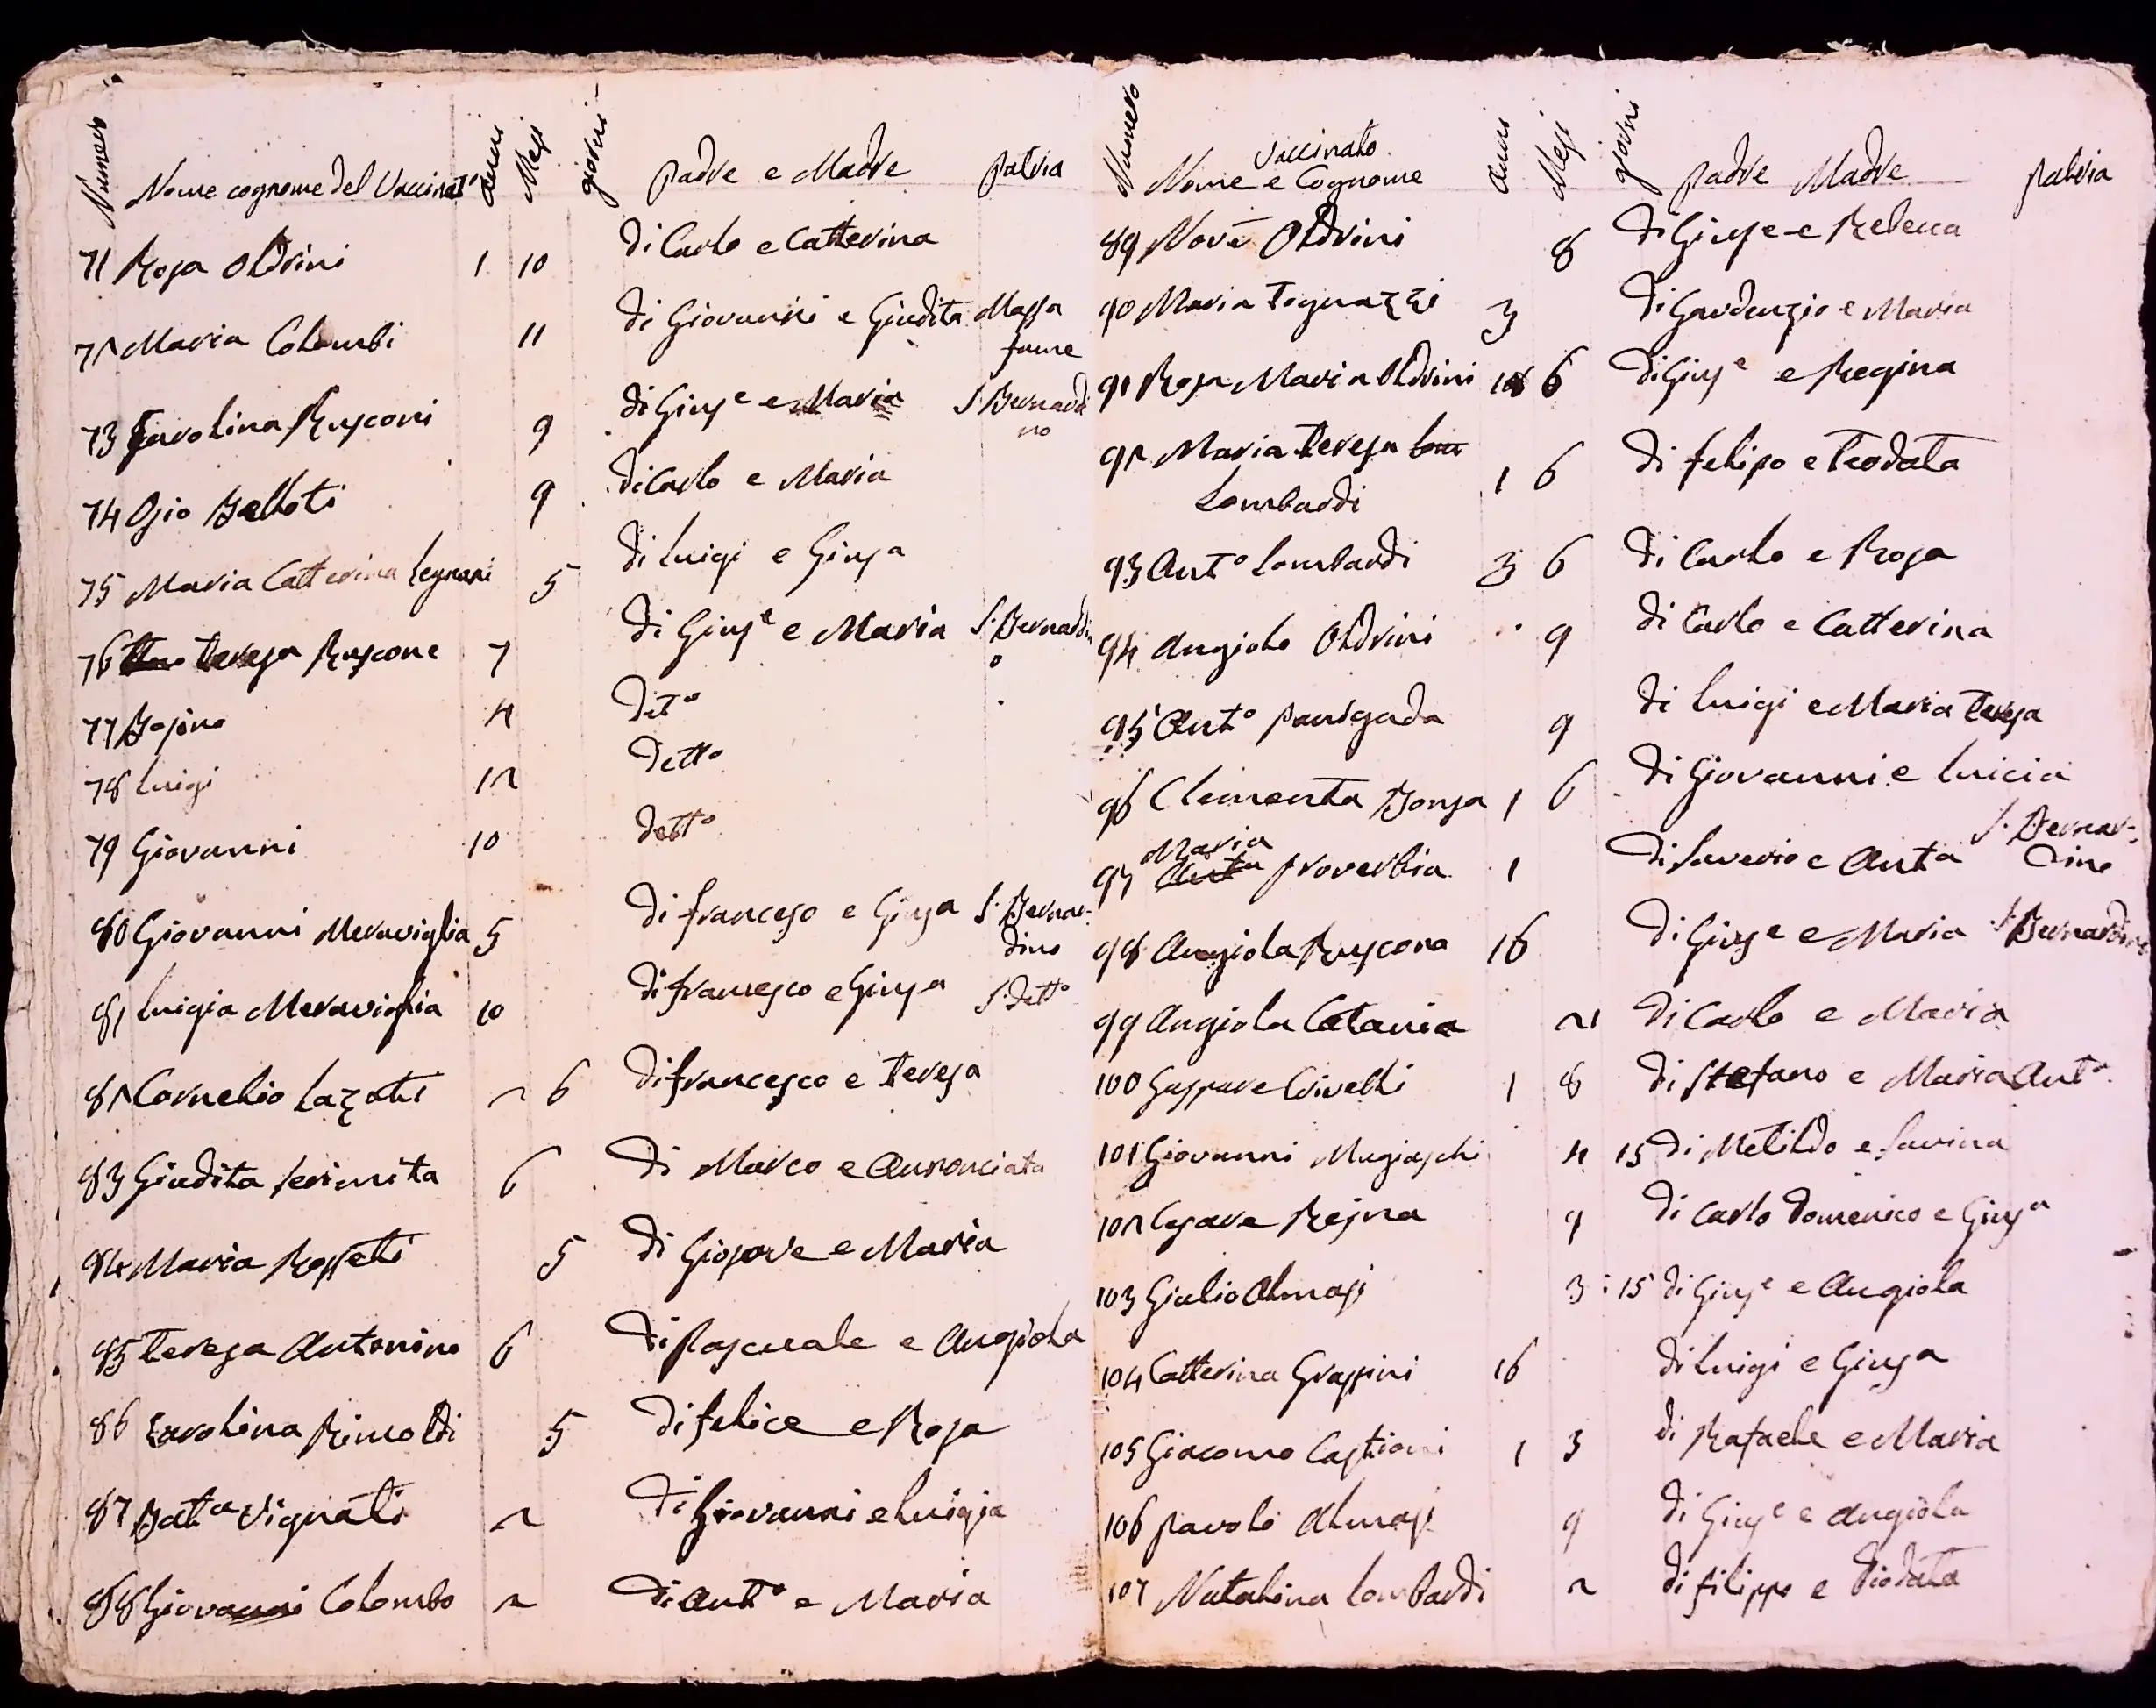 Numero Nome cognome del Vaccinato anni Mesi giorni Padre e Madre Patria
71 Rosa Oldrini 1 10 di Carlo e Catterina
72 Maria Colombi 11 di Giovanni e Giudita Massa
fame
73 Carolina Rusconi 9 di Giuse e Maria S. Bernardi
no
74 Gio Belloti 9 di Carlo e Maria
75 Maria Catterina Legnani 5 di Luigi e Giusa
76 Teresa Ruscone 7 di Giuse e Maria S. Bernardin
o
77 4 Dito
78 Luigi 12 Detto
79 Giovanni 10 detto
80 Giovanni Meraviglia 5 di Franceso e Giusa S. Bernar-
dino
81 Luigia Meraviglia 10 di Francesco e Giusa S. Detto
82 Cornelio Lazati 2 6 di Francesco e Teresa
83 Giudita 6 di Marco e Anonciata
84 Maria Rosseti 5 di Giosove e Maria
85 Teresa Antonino 6 di Pascuale e Angiola
86 Carolina Rimoldi 5 di Felice e Rosa
87 Bata Vignati 2 di Giovanni e Luigia
88 Giovanni Colombo 2 di Anto e Maria
Numero Vaccinato
Nome e Cognome anni Mesi giorni Padre Madre Patria
89 Nove Oldrini 8 di Giuse e Rebecca
90 Maria Tognazzi 3 di Gaudenzio e Maria
91 Rosa Maria Oldrini 6 di Giuse e Regina
92 Maria Teresa
Lombardi 1 6 di Felipo e Teodata
93 Anto Lombardi 3 6 di Carlo e Rosa
94 Angiolo Oldrini 9 di Carlo e Catterina
95 Anto Panigada 9 di Luigi e Maria Teresa
96 Clementa Bonsa 1 6 di Giovanni e Luicia
Maria
97 Anta Proverbia 1 di Saverio e Anta S. Bernar-
dino
98 Angiola Ruscona 16 di Giuse e Maria S. Bernardino
99 Angiola Catania 21 di Carlo e Maria
100 Gaspare Crivelli 1 8 di Stefano e Maria Anta
101 Giovanni Mugiaschi 4 15 di Metildo e Savina
102 Cesare Rejna 9 di Carlo Domenico e Giusa
103 Giulio Almasi 3 : 15 di Giuse e Angiola
104 Catterina Graspini 16 di Luigi e Giusa
105 Giacomo Castioni 1 3 di Rafaele e Maria
106 Pavolo Almasi 9 di Giuse e Angiola
107 Natalina Lombardi 2 di Filippo e Diodata